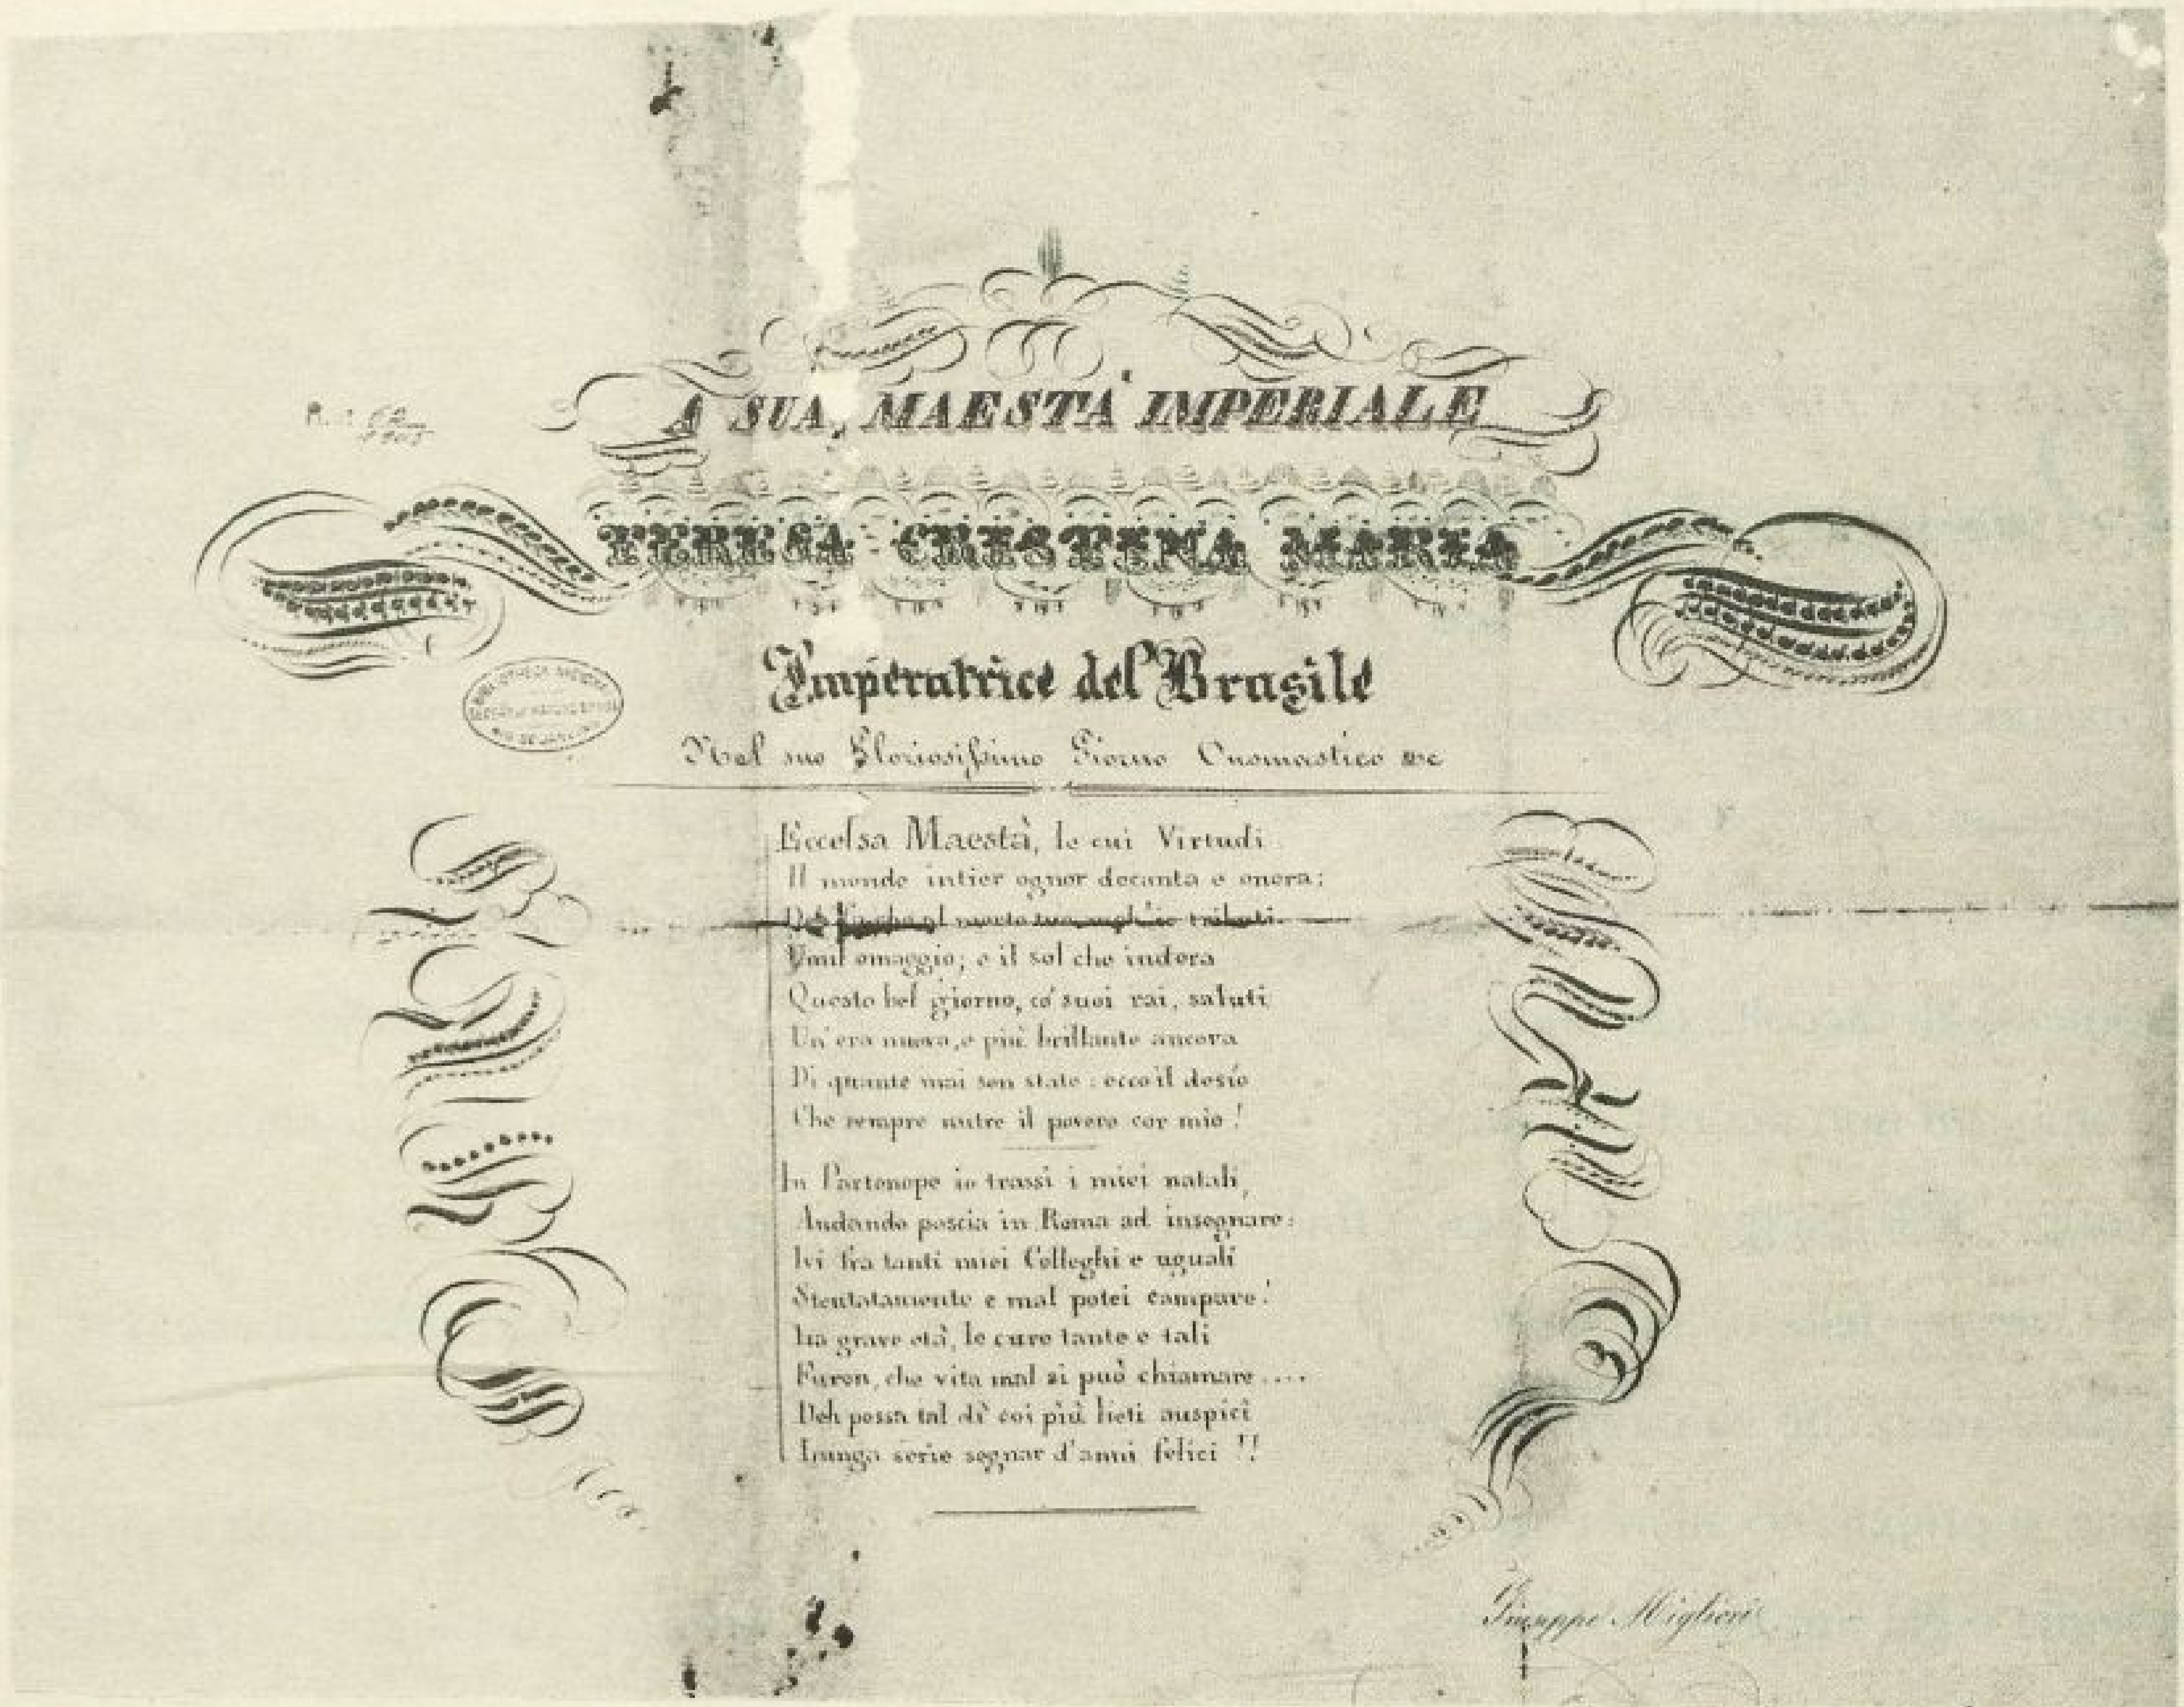 A SUA MAESTÀ IMPERIALE
TERESA CRISTINA MARIA
Imperatrice del Brasile
Nel suo Gloriosissimo Giorno Onomastico &c
Eccelsa Maestà, le cui Virtudi
Il mondo intier ognor decanta e onora;
Deh al merto tuo tributi
Umil omaggio; e il sol che indora
Questo bel giorno, co' suoi rai, saluti
Un'era nuova, e più brillante ancora
Di quante mai son state: ecco il desio
Che sempre nutre il povero cor mio!
In Partenope io trassi i miei natali,
Andando poscia in Roma ad insegnare:
Ivi fra tanti miei Colleghi e uguali
Stentatamente e mal potei campare!
In grave età, le cure tante e tali
Furon, che vita mal si può chiamare....
Deh possa tal dì coi più lieti auspici
Lunga serie segnar d'anni felici!!
Giuseppe Miglieri